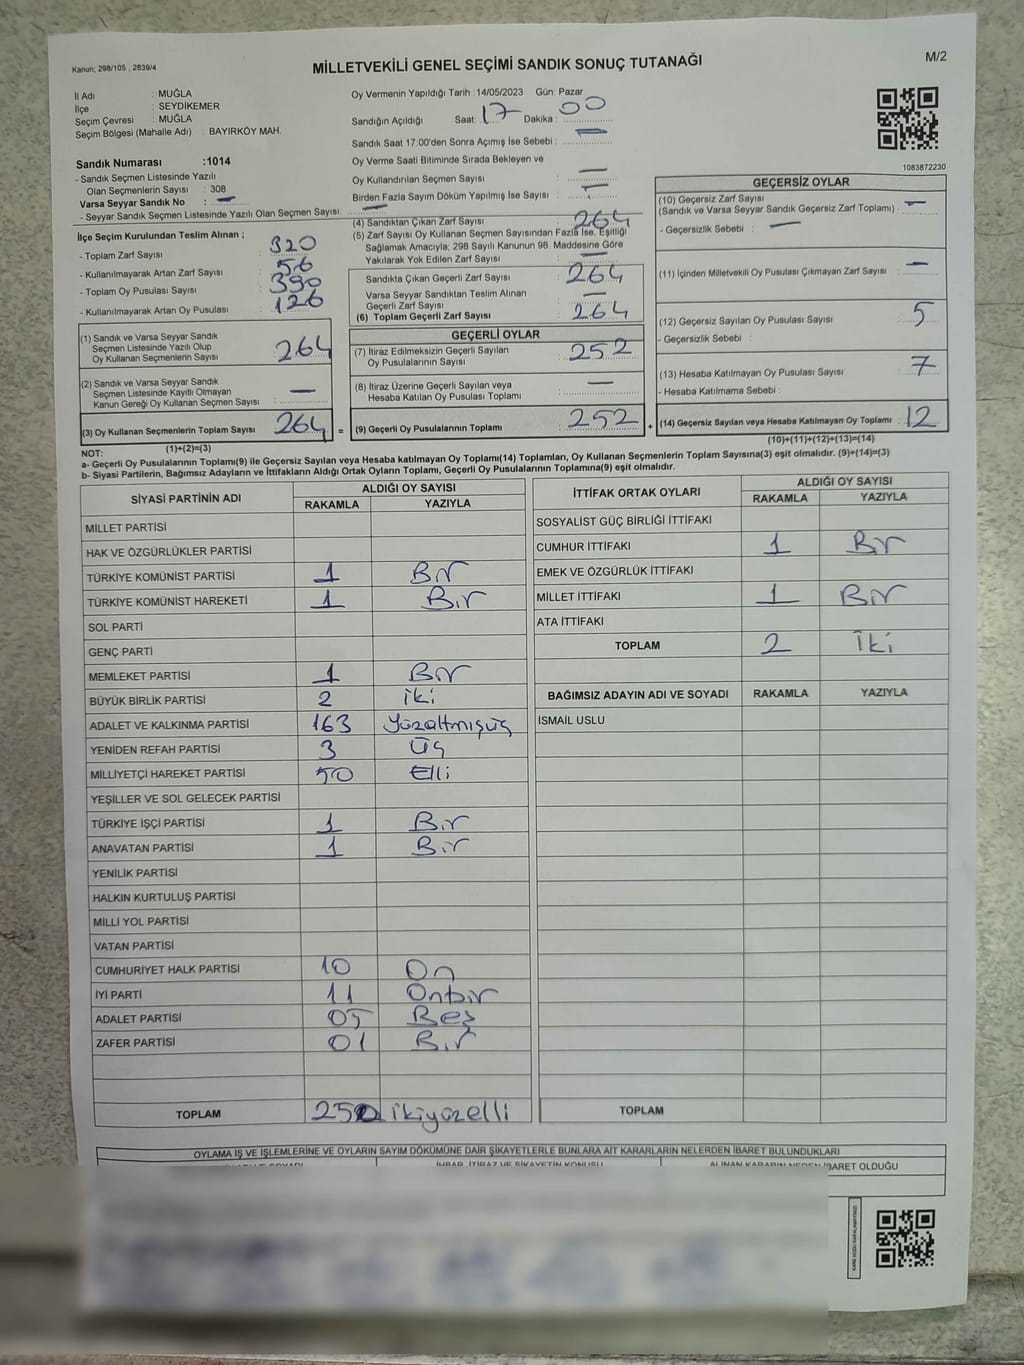 Kanun; 298/105 , 2839/4
MİLLETVEKİLİ GENEL SEÇİMİ SANDIK SONUÇ TUTANAĞI
M/2
İl Adı : MUĞLA
İlçe : SEYDİKEMER
Seçim Çevresi : MUĞLA
Seçim Bölgesi (Mahalle Adı) : BAYIRKÖY MAH.
Sandık Numarası :1014
- Sandık Seçmen Listesinde Yazılı
Olan Seçmenlerin Sayısı : 308
Varsa Seyyar Sandık No : —
- Seyyar Sandık Seçmen Listesinde Yazılı Olan Seçmen Sayısı: —
Oy Vermenin Yapıldığı Tarih : 14/05/2023 Gün: Pazar
Sandığın Açıldığı Saat: 17 Dakika : 00
Sandık Saat 17:00'den Sonra Açımış İse Sebebi : —
Oy Verme Saati Bitiminde Sırada Bekleyen ve
Oy Kullandırılan Seçmen Sayısı : —
Birden Fazla Sayım Döküm Yapılmış İse Sayısı : —
1083872230
İlçe Seçim Kurulundan Teslim Alınan ;
- Toplam Zarf Sayısı : 320
- Kullanılmayarak Artan Zarf Sayısı : 56
- Toplam Oy Pusulası Sayısı : 390
- Kullanılmayarak Artan Oy Pusulası : 126
(1) Sandık ve Varsa Seyyar Sandık
Seçmen Listesinde Yazılı Olup
Oy Kullanan Seçmenlerin Sayısı : 264
(2) Sandık ve Varsa Seyyar Sandık
Seçmen Listesinde Kayıtlı Olmayan
Kanun Gereği Oy Kullanan Seçmen Sayısı : —
(3) Oy Kullanan Seçmenlerin Toplam Sayısı : 264
(1)+(2)=(3)
(4) Sandıktan Çıkan Zarf Sayısı : 264
(5) Zarf Sayısı Oy Kullanan Seçmen Sayısından Fazla İse, Eşitliği
Sağlamak Amacıyla; 298 Sayılı Kanunun 98. Maddesine Göre
Yakılarak Yok Edilen Zarf Sayısı : —
Sandıkta Çıkan Geçerli Zarf Sayısı : 264
Varsa Seyyar Sandıktan Teslim Alınan
Geçerli Zarf Sayısı : —
(6) Toplam Geçerli Zarf Sayısı : 264
GEÇERLİ OYLAR
(7) İtiraz Edilmeksizin Geçerli Sayılan
Oy Pusulalarının Sayısı : 252
(8) İtiraz Üzerine Geçerli Sayılan veya
Hesaba Katılan Oy Pusulası Toplamı : —
= (9) Geçerli Oy Pusulalarının Toplamı : 252
GEÇERSİZ OYLAR
(10) Geçersiz Zarf Sayısı
(Sandık ve Varsa Seyyar Sandık Geçersiz Zarf Toplamı) : —
- Geçersizlik Sebebi : —
(11) İçinden Milletvekili Oy Pusulası Çıkmayan Zarf Sayısı : —
(12) Geçersiz Sayılan Oy Pusulası Sayısı : 5
- Geçersizlik Sebebi :
(13) Hesaba Katılmayan Oy Pusulası Sayısı : 7
- Hesaba Katılmama Sebebi :
+ (14) Geçersiz Sayılan veya Hesaba Katılmayan Oy Toplamı : 12
(10)+(11)+(12)+(13)=(14)
NOT:
a- Geçerli Oy Pusulasının Toplamı(9) ile Geçersiz Sayılan veya Hesaba katılmayan Oy Toplamı(14) Toplamları, Oy Kullanan Seçmenlerin Toplam Sayısına(3) eşit olmalıdır. (9)+(14)=(3)
b- Siyasi Partilerin, Bağımsız Adayların ve İttifakların Aldığı Ortak Oyların Toplamı, Geçerli Oy Pusulalarının Toplamına(9) eşit olmalıdır.
SİYASİ PARTİNİN ADI ALDIĞI OY SAYISI
RAKAMLA YAZIYLA
MİLLET PARTİSİ
HAK VE ÖZGÜRLÜKLER PARTİSİ
TÜRKİYE KOMÜNİST PARTİSİ 1 Bir
TÜRKİYE KOMÜNİST HAREKETİ 1 Bir
SOL PARTİ
GENÇ PARTİ
MEMLEKET PARTİSİ 1 Bir
BÜYÜK BİRLİK PARTİSİ 2 iki
ADALET VE KALKINMA PARTİSİ 163 Yüzaltmışüç
YENİDEN REFAH PARTİSİ 3 Üç
MİLLİYETÇİ HAREKET PARTİSİ 50 Elli
YEŞİLLER VE SOL GELECEK PARTİSİ
TÜRKİYE İŞÇİ PARTİSİ 1 Bir
ANAVATAN PARTİSİ 1 Bir
YENİLİK PARTİSİ
HALKIN KURTULUŞ PARTİSİ
MİLLİ YOL PARTİSİ
VATAN PARTİSİ
CUMHURİYET HALK PARTİSİ 10 On
İYİ PARTİ 11 Onbir
ADALET PARTİSİ 05 Beş
ZAFER PARTİSİ 01 Bir
TOPLAM 250 ikiyüzelli
İTTİFAK ORTAK OYLARI ALDIĞI OY SAYISI
RAKAMLA YAZIYLA
SOSYALİST GÜÇ BİRLİĞİ İTTİFAKI
CUMHUR İTTİFAKI 1 Bir
EMEK VE ÖZGÜRLÜK İTTİFAKI
MİLLET İTTİFAKI 1 Bir
ATA İTTİFAKI
TOPLAM 2 İki
BAĞIMSIZ ADAYIN ADI VE SOYADI RAKAMLA YAZIYLA
İSMAİL USLU
TOPLAM
OYLAMA İŞ VE İŞLEMLERİNE VE OYLARIN SAYIM DÖKÜMÜNE DAİR ŞİKAYETLERLE BUNLARA AİT KARARLARIN NELERDEN İBARET BULUNDUKLARI
İHBAR, İTİRAZ VE ŞİKAYETİN KONUSU ALINAN KARARIN NEDEN İBARET OLDUĞU